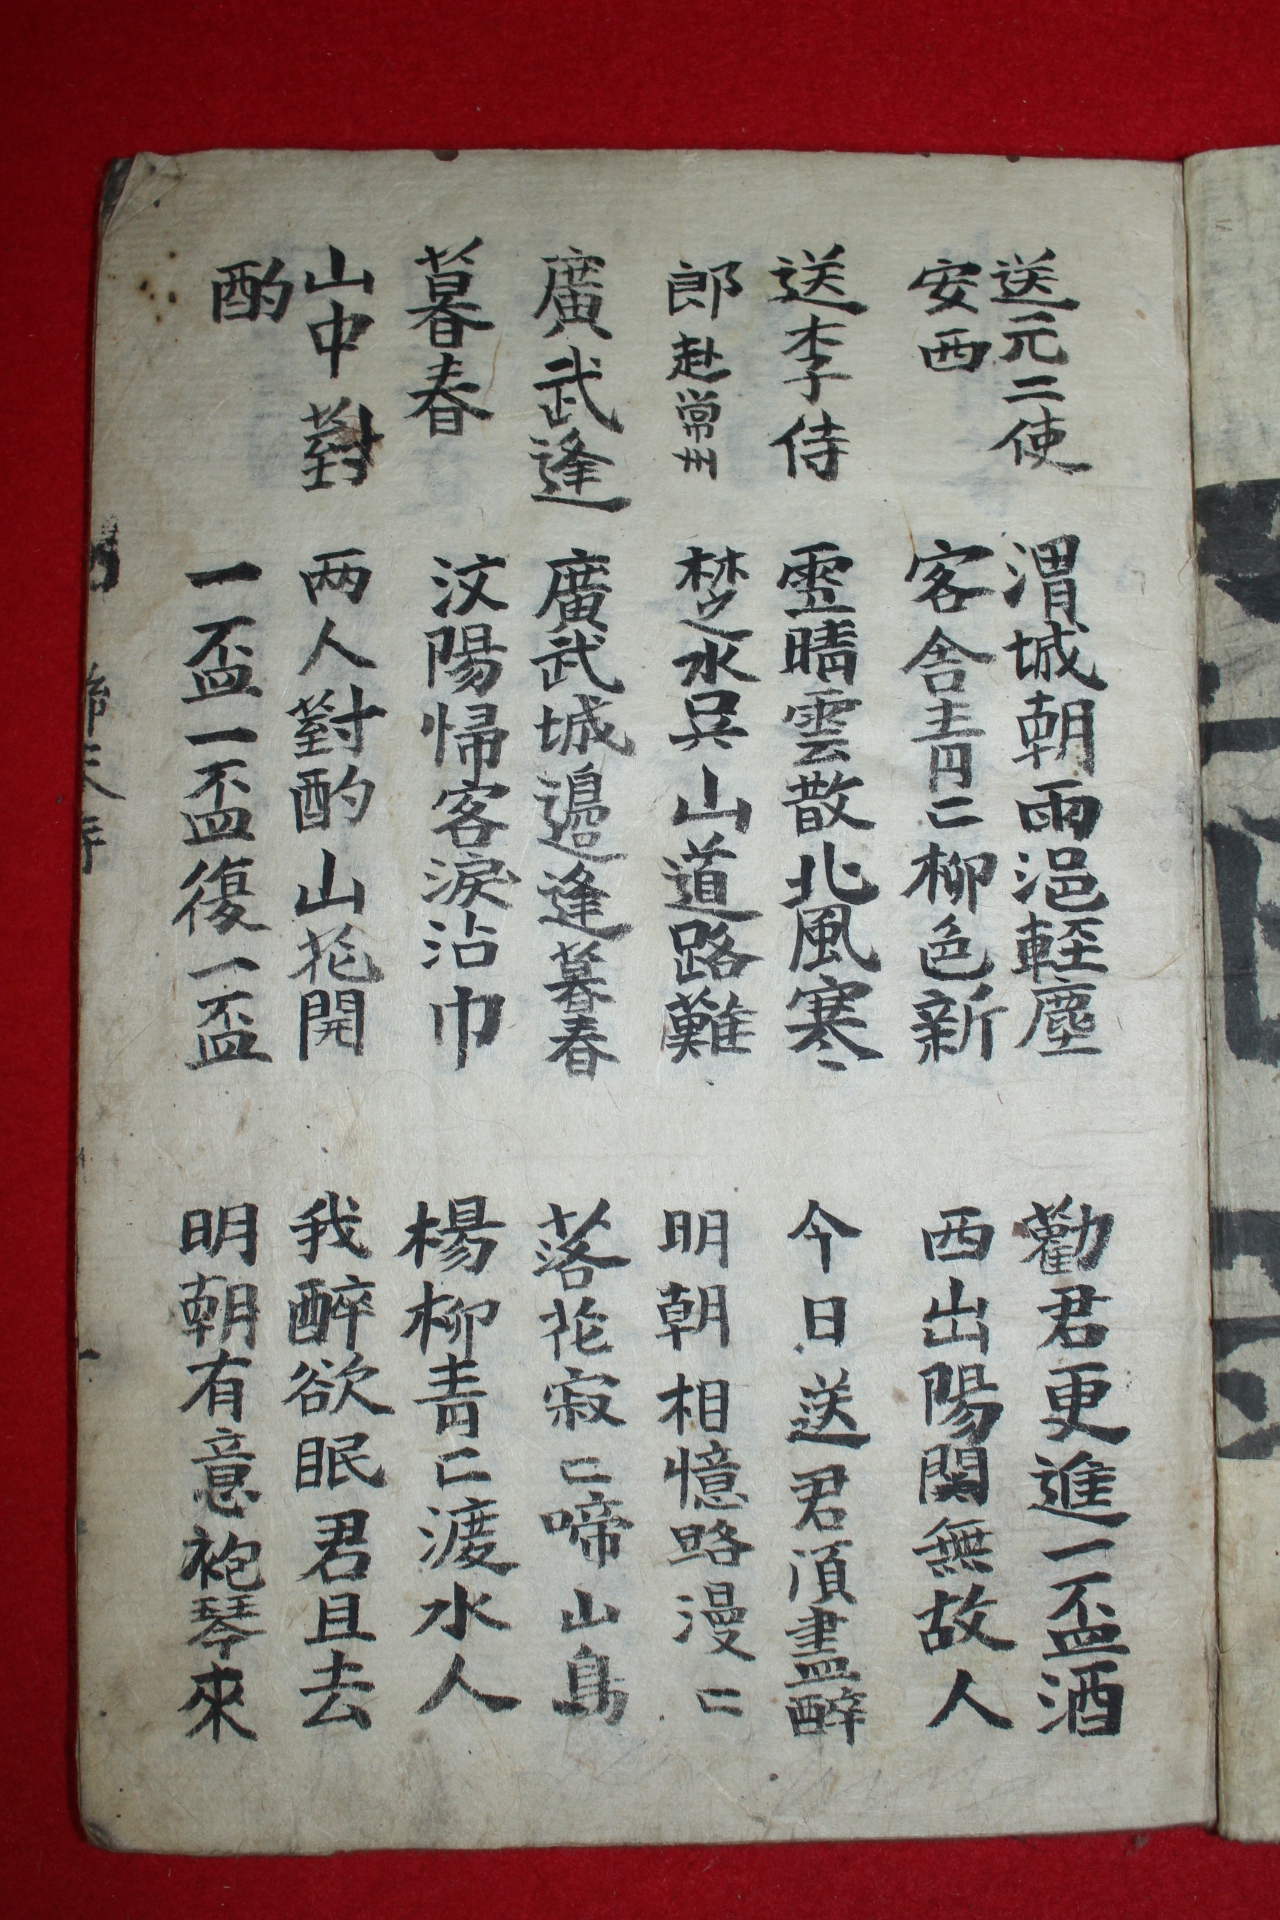 送元二使 渭城朝雨浥輊塵 勸君更進一盃酒
安西 客舍青〻柳色新 西出陽関無故人
送李侍 雪晴雲散北風寒 今日送君湏盡醉
郎赴常州 楚水吴山道路難 明朝相憶路漫〻
廣武逢 廣武城邉逢暮春 落花寂〻啼山鳥
暮春 汶陽帰客淚沾巾 楊柳青〻渡水人
山中對 两人對酌山花開 我醉欲眠君且去
酌 一盃一盃復一盃 明朝有意袍琴來